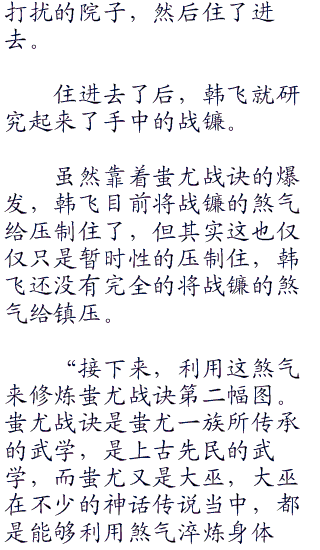 打扰的院子，然后住了进
去。
住进去了后，韩飞就研
究起来了手中的战镰。
虽然靠着蚩尤战诀的爆
发，韩飞目前将战镰的煞气
给压制住了，但其实这也仅
仅只是暂时性的压制住，韩
飞还没有完全的将战镰的煞
气给镇压。
“接下来，利用这煞气
来修炼蚩尤战诀第二幅图。
蚩尤战诀是蚩尤一族所传承
的武学，是上古先民的武
学，而蚩尤又是大巫，大巫
在不少的神话传说当中，都
是能够利用煞气淬炼身体